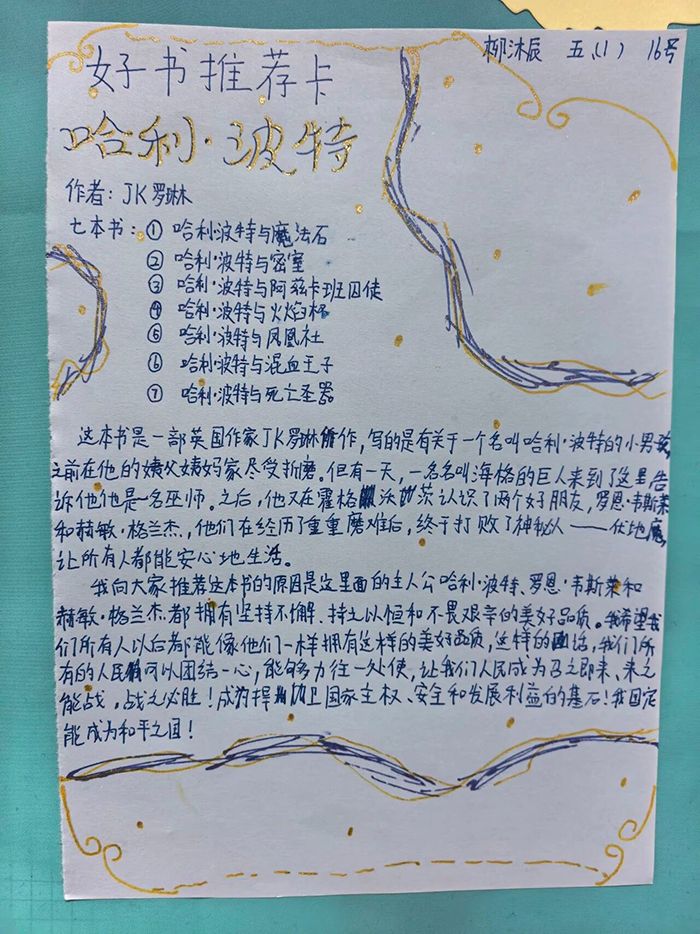 柳沐辰 五(1) 16号
好书推荐卡
哈利·波特
作者：JK罗琳
七本书：① 哈利波特与魔法石
② 哈利·波特与密室
③ 哈利·波特与阿兹卡班囚徒
④ 哈利·波特与火焰杯
⑤ 哈利·波特与凤凰社
⑥ 哈利·波特与混血王子
⑦ 哈利·波特与死亡圣器
这本书是一部英国作家JK罗琳所作，写的是有关于一个名叫哈利·波特的小男孩
之前在他的姨父姨妈家尽受折磨。但有一天，一名名叫海格的巨人来到了这里告
诉他他是一名巫师。之后，他又在霍格沃茨认识了两个好朋友，罗恩·韦斯莱
和赫敏·格兰杰，他们在经历了重重磨难后，终于打败了神秘人——伏地魔，
让所有人都能安心地生活。
我向大家推荐这本书的原因是这里面的主人公哈利·波特、罗恩·韦斯莱和
赫敏·格兰杰都拥有坚持不懈、持之以恒和不畏艰辛的美好品质。我希望我
们所有人以后都能像他们一样拥有这样的美好品质，这样的话，我们所
有的人民可以团结一心，能够力往一处使，让我们人民成为召之即来、来之
能战，战之必胜！成为捍卫国家主权、安全和发展利益的基石！我国定
能成为和平之国！